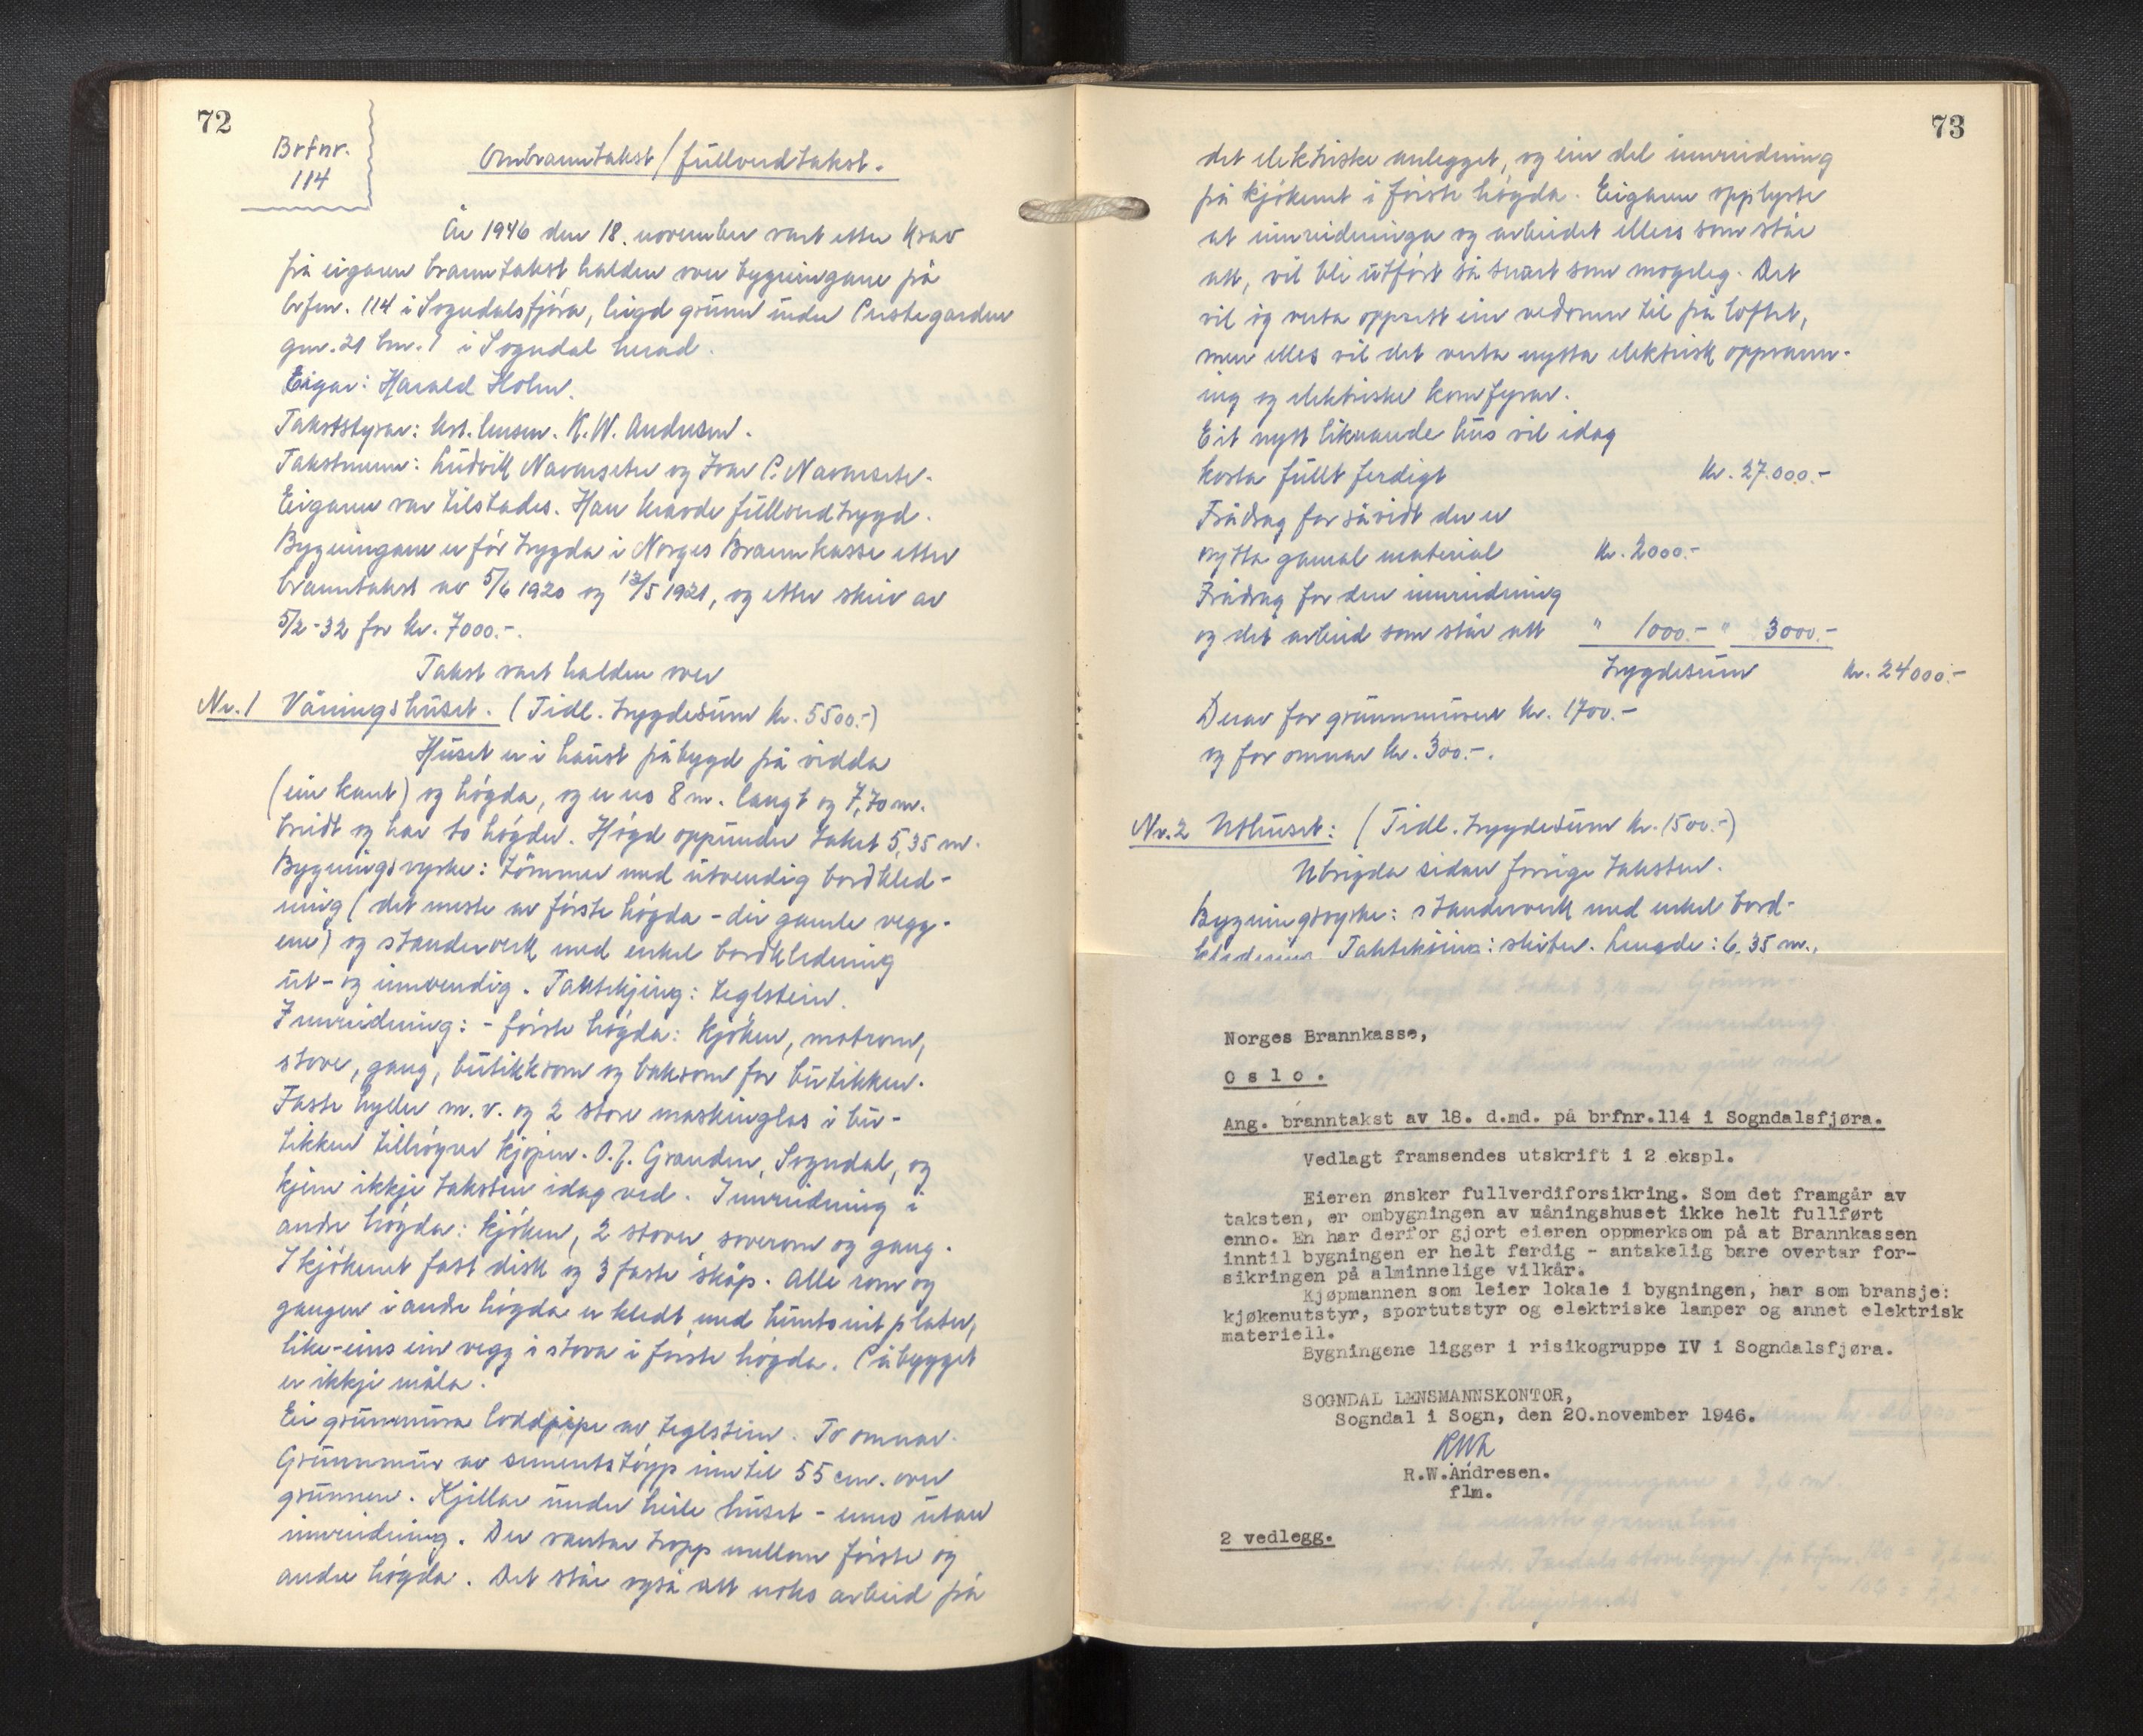 72
Brfnr.
114
Ombranntakst/fullverdtakst.
År 1946 den 18. november vart etter krav
frå eigaren branntakst halden over bygningane på
brfnr. 114 i Sogndalsfjøra, bygd grunn under Prestegarden
gnr. 21 bnr. 1 i Sogndal herad.
Eigar: Harald Holm.
Takststyrar: lensm. R.W. Andresen.
Takstmenn: Ludvik Navarsete og Ivar P. Navarsete.
Eigaren var tilstades. Han kravde fullverdtrygd.
Bygningane er før trygda i Norges Brannkasse etter
branntakst av 5/6 1920 og 12/5 1921, og etter skriv av
5/2-32 for kr. 7000.-.
Takst vart halden over
Nr. 1 Våningshuset. (Tidl. trygdesum kr. 5500.-)
Huset er i haust påbygd på vidda
(ein kant) og høgda, og er no 8 m. langt og 7,70 m.
breidt og har to høgder. Høgd oppunder taket 5,35 m.
Bygningsvyrke: tømmer med utvendig bordkled-
ning (det meste av første høgda - dei gamle vegg-
ene) og standerverk med enkel bordkledning
ut- og innvendig. Taktekjing: teglstein.
Innreidning: - første høgda: kjøken, matrom,
stove, gang, butikkrom og bakrom for butikken.
Faste hyller m.v. og 2 store maskinglas i bu-
tikken tilhøyrer kjøpm. O.J. Granden, Sogndal, og
kjem ikkje taksten idag ved. Innreidning i
andre høgda: kjøken, 2 stover soverom og gang.
I kjøkenet fast disk og 3 faste skåp. Alle rom og
gangen i andre høgda er kledt med huntonit plater,
like-eins ein vegg i stova i første høgda. Påbygget
er ikkje måla.
Ei grunnmura loddpipe av teglstein. To omnar.
Grunnmur av sementstøyp inntil 55 cm. over
grunnen. Kjellar under heile huset - enno utan
innreidning. Der vantar tropp mellom første og
andre høgda. Det står også att noko arbeid på
73
det elektriske anlegget, og ein del innreidning
på kjøkenet i første høgda. Eigaren opplyste
at innreidninga og arbeidet ellers som står
att, vil bli utført så snart som mogeleg. Det
vil og verta oppsett ein vedomn til på loftet,
men elles vil det verta nytta elektrisk oppvarm-
ing og elektriske komfyrar.
Eit nytt liknande hus vil idag
kosta fullt ferdigt kr. 27.000.-
Frådrag for såvidt der er
nytta gamal material kr. 2000.-
Frådrag for den innreidning
og det arbeid som står att " 1000.- " 3000.-
trygdesum kr. 24000.-
Derav for grunnmuren kr. 1700.-
og for omnar kr. 300.-.
Nr. 2 Uthuset: (Tidl. trygdesum kr. 1500.-)
Ubrigda sidan forrige taksten.
Bygningsvyrke: standerverk med enkel bord-
kledning. Taktekking: skifer. Lengde: 6,35 m.,
Norges Brannkasse,
Oslo.
Ang. branntakst av 18. d.md. på brfnr.114 i Sogndalsfjøra.
Vedlagt framsendes utskrift i 2 ekspl.
Eieren ønsker fullverdiforsikring. Som det framgår av
taksten, er ombygningen av våningshuset ikke helt fullført
enno. En har derfor gjort eieren oppmerksom på at Brannkassen
inntil bygningen er helt ferdig - antakelig bare overtar for-
sikringen på alminnelige vilkår.
Kjøpmannen som leier lokale i bygningen, har som bransje:
kjøkenutstyr, sportutstyr og elektriske lamper og annet elektrisk
materiell.
Bygningene ligger i risikogruppe IV i Sogndalsfjøra.
SOGNDAL LENSMANNSKONTOR,
Sogndal i Sogn, den 20.november 1946.
RWA
R.W.Andresen.
flm.
2 vedlegg.